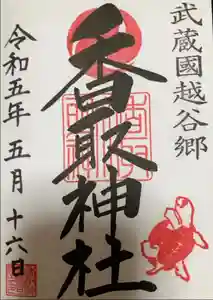 武蔵國越谷郷
香取神社
令和五年五月十六日